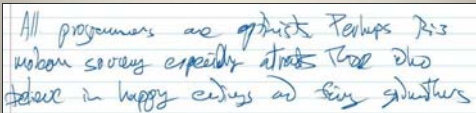 All programmers are optimists Perhaps this
modern sorcery especially attracts those who
believe in happy endings and fairy godmothers